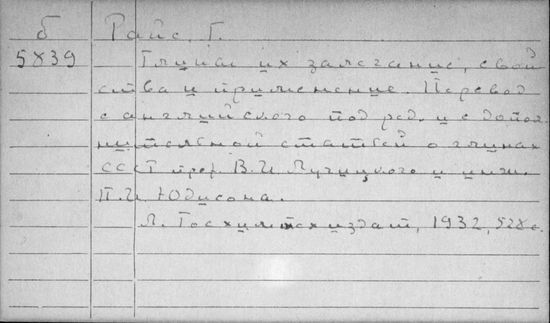 б Райс. Г.
5839 Глины их залегание, свой
ства и применение. Перевод
с английского под ред. и с допол
нительной статьей о глинах
СССР проф. В.И. Лучицкого и инж.
П.И. Юдисона.
Л. Госхимтехиздат, 1932, 528 с.